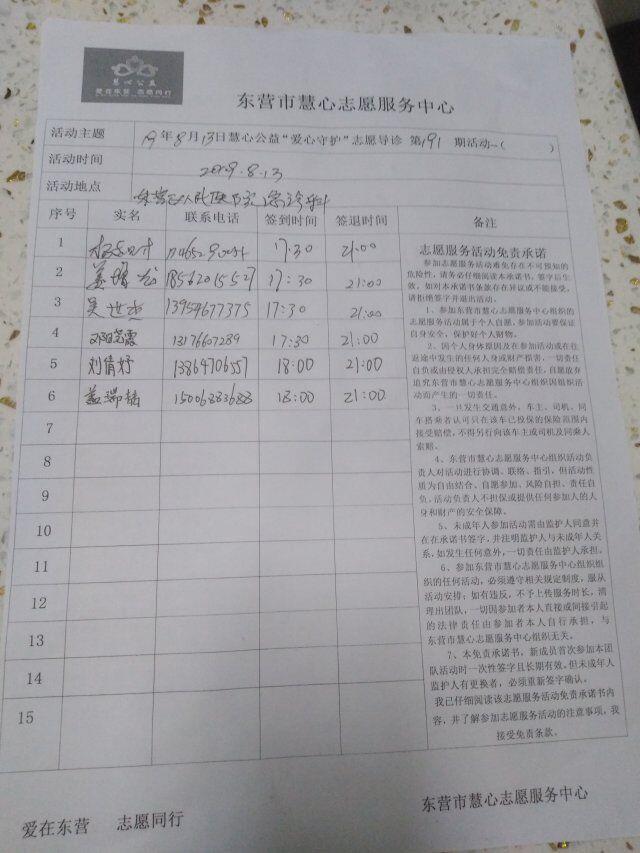 慧心公益
爱在东营 志愿同行
东营市慧心志愿服务中心
活动主题 19年8月13日慧心公益“爱心守护”志愿导诊 第191期活动-( )
活动时间 2019.8.13
活动地点 东营区人民医院
序号 实名 联系电话 签到时间 签退时间 备注
1 17:30 21:00
2 18562015527 17:30 21:00
3 吴世杰 13954677375 17:30 21:00
4 邓晓霞 17:30 21:00
5 刘倩妤 13864706557 18:00 21:00
6 盖瑞娟 15006883688 18:00 21:00
7
8
9
10
11
12
13
14
15
志愿服务活动免责承诺
参加志愿服务活动难免存在不可预知的
危险性，请务必仔细阅读本承诺书，签字后生
效。如对本承诺书条款存在异议或不能接受，
请拒绝签字并退出活动。
1、参加东营市慧心志愿服务中心组织的
志愿服务活动属于个人自愿。参加活动要保证
自身安全，保护好个人财物。
2、因个人身体原因及在参加活动或在往
返途中发生的任何人身或财产损害，一切责任
自负或由侵权人承担完全赔偿责任，自愿放弃
追究东营市慧心志愿服务中心组织因组织活
动而产生的一切责任。
3、一旦发生交通意外，车主、司机、同
车搭乘者认可只在该车已投保的保险范围内
接受赔偿，不得另行向该车主或司机及同乘人
索赔。
4、东营市慧心志愿服务中心组织活动负
责人对活动进行协调、联络、指引，但活动性
质为自由结合、自愿参加、风险自担、责任自
负。活动负责人不担保或提供任何参加人的人
身和财产的安全保障。
5、未成年人参加活动需由监护人同意并
在在承诺书签字，并注明监护人与未成年人关
系，如发生任何意外，一切责任由监护人承担。
6、参加东营市慧心志愿服务中心组织组
织的任何活动，必须遵守相关规定制度，服从
活动安排；如有违反，不予上传服务时长，清
理出团队，一切因参加者本人直接或间接引起
的法律责任由参加者本人自行承担，与
东营市慧心志愿服务中心组织无关。
7、本免责承诺书，新成员首次参加本团
队活动时一次性签字且长期有效。但未成年人
监护人有更换者，必须重新签字确认。
我已仔细阅读该志愿服务活动免责承诺书内
容，并了解参加志愿服务活动的注意事项，我
接受免责条款。
爱在东营 志愿同行
东营市慧心志愿服务中心